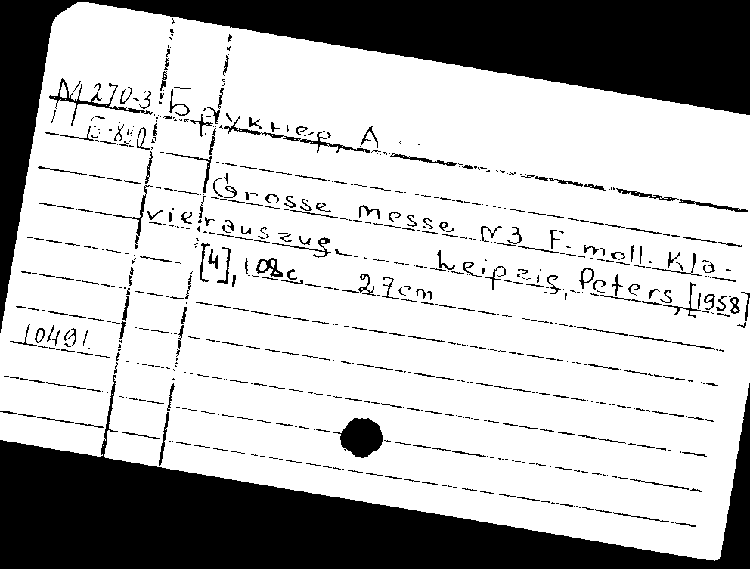 М 270-3 Брукнер, А...
Б-880
Grosse messe N3 F-moll. Kla-
vierauszug. Leipzig, Peters, [1958]
[4], 108c. 27cm
10491